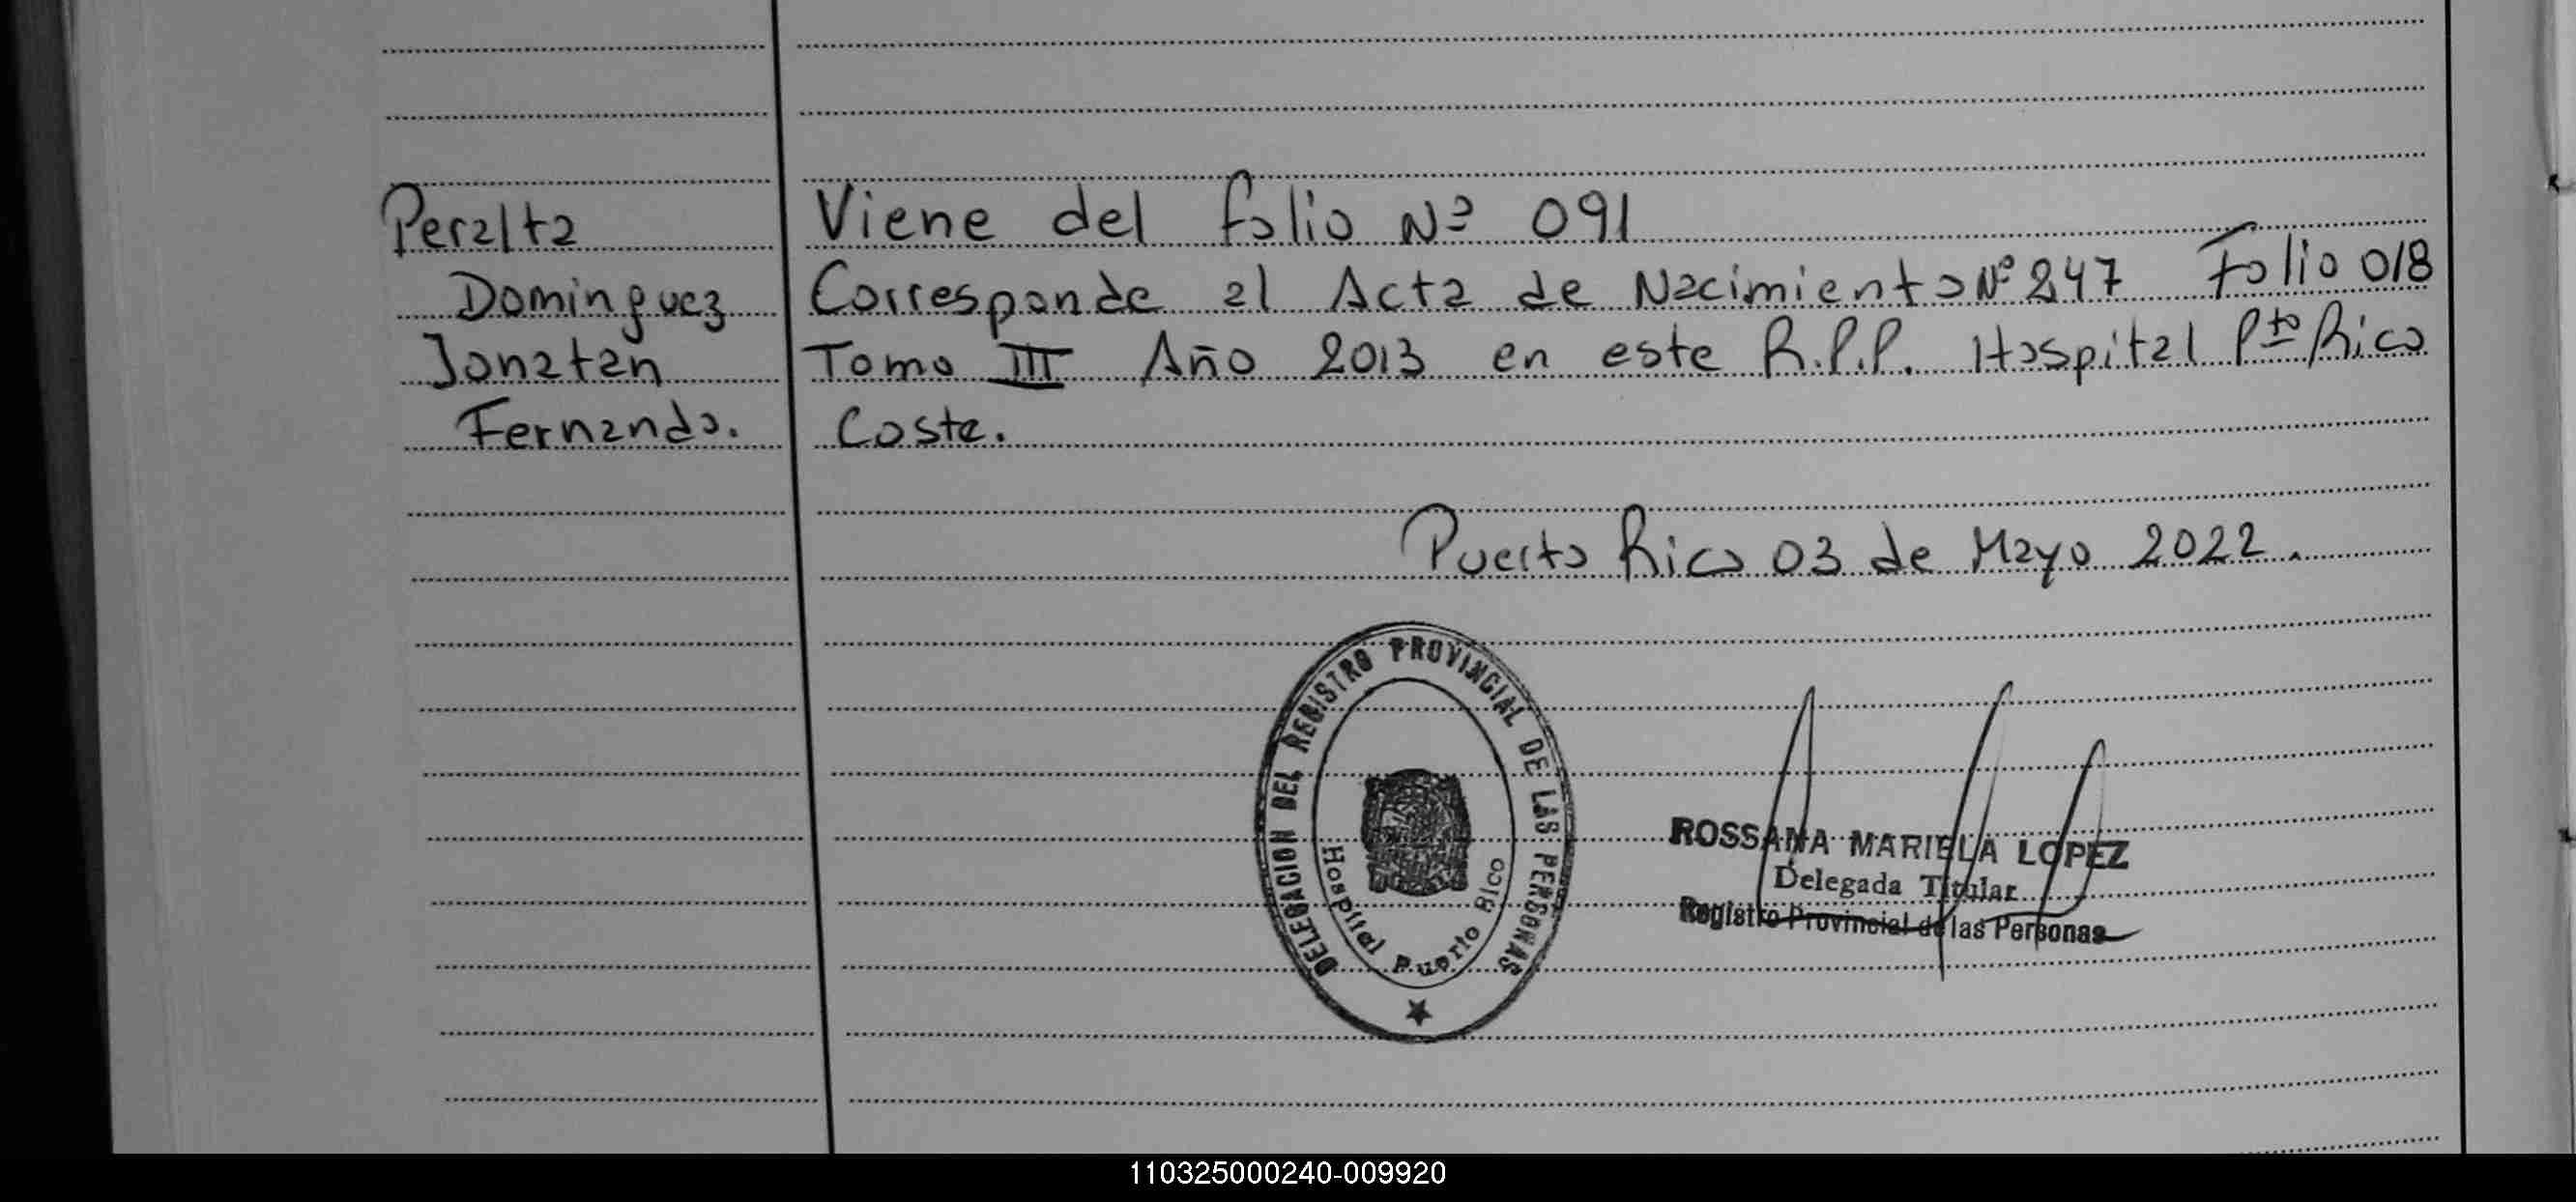 Peralta
Dominguez
Jonatan
Fernando.
Viene del folio Nº 091
Corresponde al Acta de Nacimiento Nº 247 Folio 018
Tomo III Año 2013 en este R.P.P. Hospital Pto Rico
Coste.
Puerto Rico 03 de Mayo 2022.
DELEGACION DEL REGISTRO PROVINCIAL DE LAS PERSONAS
Hospital Puerto Rico
ROSSANA MARIELA LOPEZ
Delegada Titular
Registro Provincial de las Personas
110325000240-009920